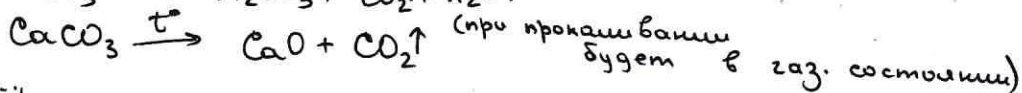 CaCO₃ —t°→ CaO + CO₂↑ (при прокаливании
будет в газ. состоянии)